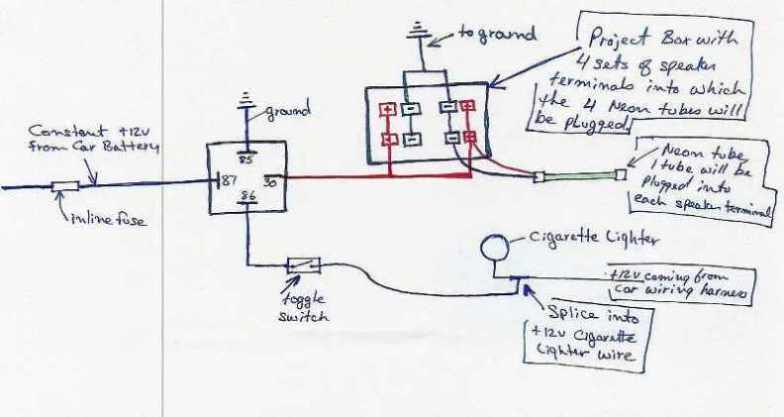 to ground
Project Box with
4 sets of speaker
terminals into which
the 4 Neon tubes will
be plugged.
ground
Constant +12v
from Car Battery
85
87
30
86
inline fuse
+
-
-
+
+
-
-
+
Neon tube,
1 tube will be
plugged into
each speaker terminal
Cigarette Lighter
+12v coming from
car wiring harness
toggle
switch
Splice into
+12v Cigarette
Lighter wire